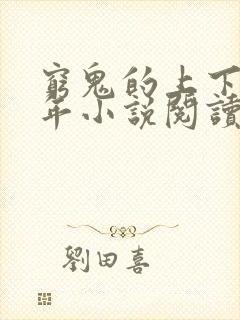 窮鬼的上下
年小說閱讀
劉田喜